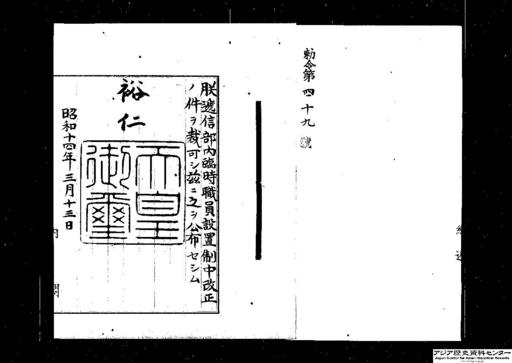 勅令第四十九號
朕逓信部内臨時職員設置制中改正
ノ件ヲ裁可シ茲ニ之ヲ公布セシム
裕仁
天皇御璽
昭和十四年三月十三日
内閣
アジア歴史資料センター
Japan Center for Asian Historical Records